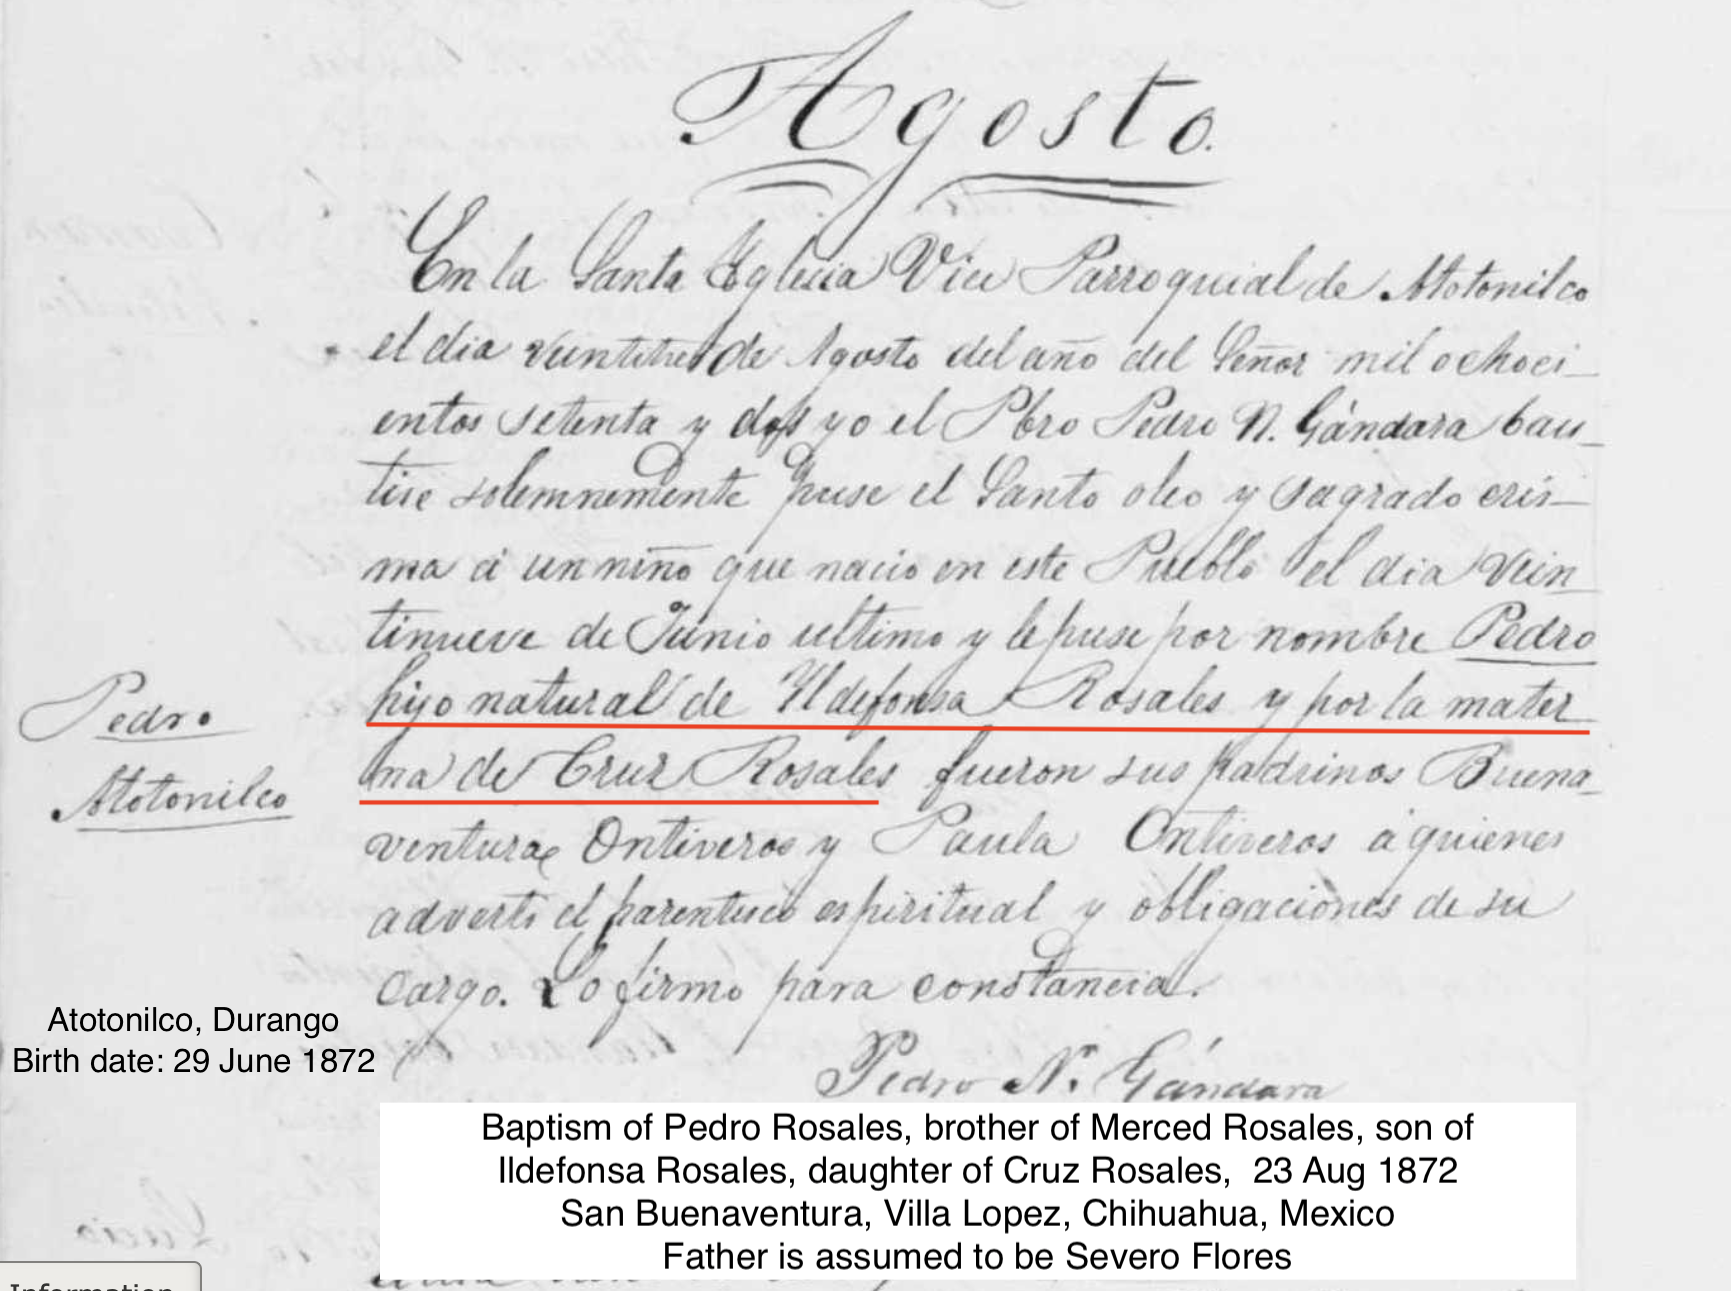 Agosto.
En la Santa Yglecia Vice Parroquial de Atotonilco
el dia veintitres de Agosto del año del Señor mil ochoci_
entos setenta y dos yo el Pbro Pedro N. Gándara bau_
tise solemnemente puse el Santo oleo y sagrado cris_
ma á un niño que nacio en este Pueblo el dia vein_
tinueve de Junio ultimo y le puse por nombre Pedro
hijo natural de Yldefonsa Rosales y por la mater_
na de Cruz Rosales fueron sus padrinos Buena_
Pedro.
Atotonilco
ventura Ontiveros y Paula Ontiveros á quienes
adverti el parentesco espiritual y obligaciones de su
cargo. Lo firmo para constancia.
Pedro N. Gándara
Atotonilco, Durango
Birth date: 29 June 1872
Baptism of Pedro Rosales, brother of Merced Rosales, son of
Ildefonsa Rosales, daughter of Cruz Rosales, 23 Aug 1872
San Buenaventura, Villa Lopez, Chihuahua, Mexico
Father is assumed to be Severo Flores
Information